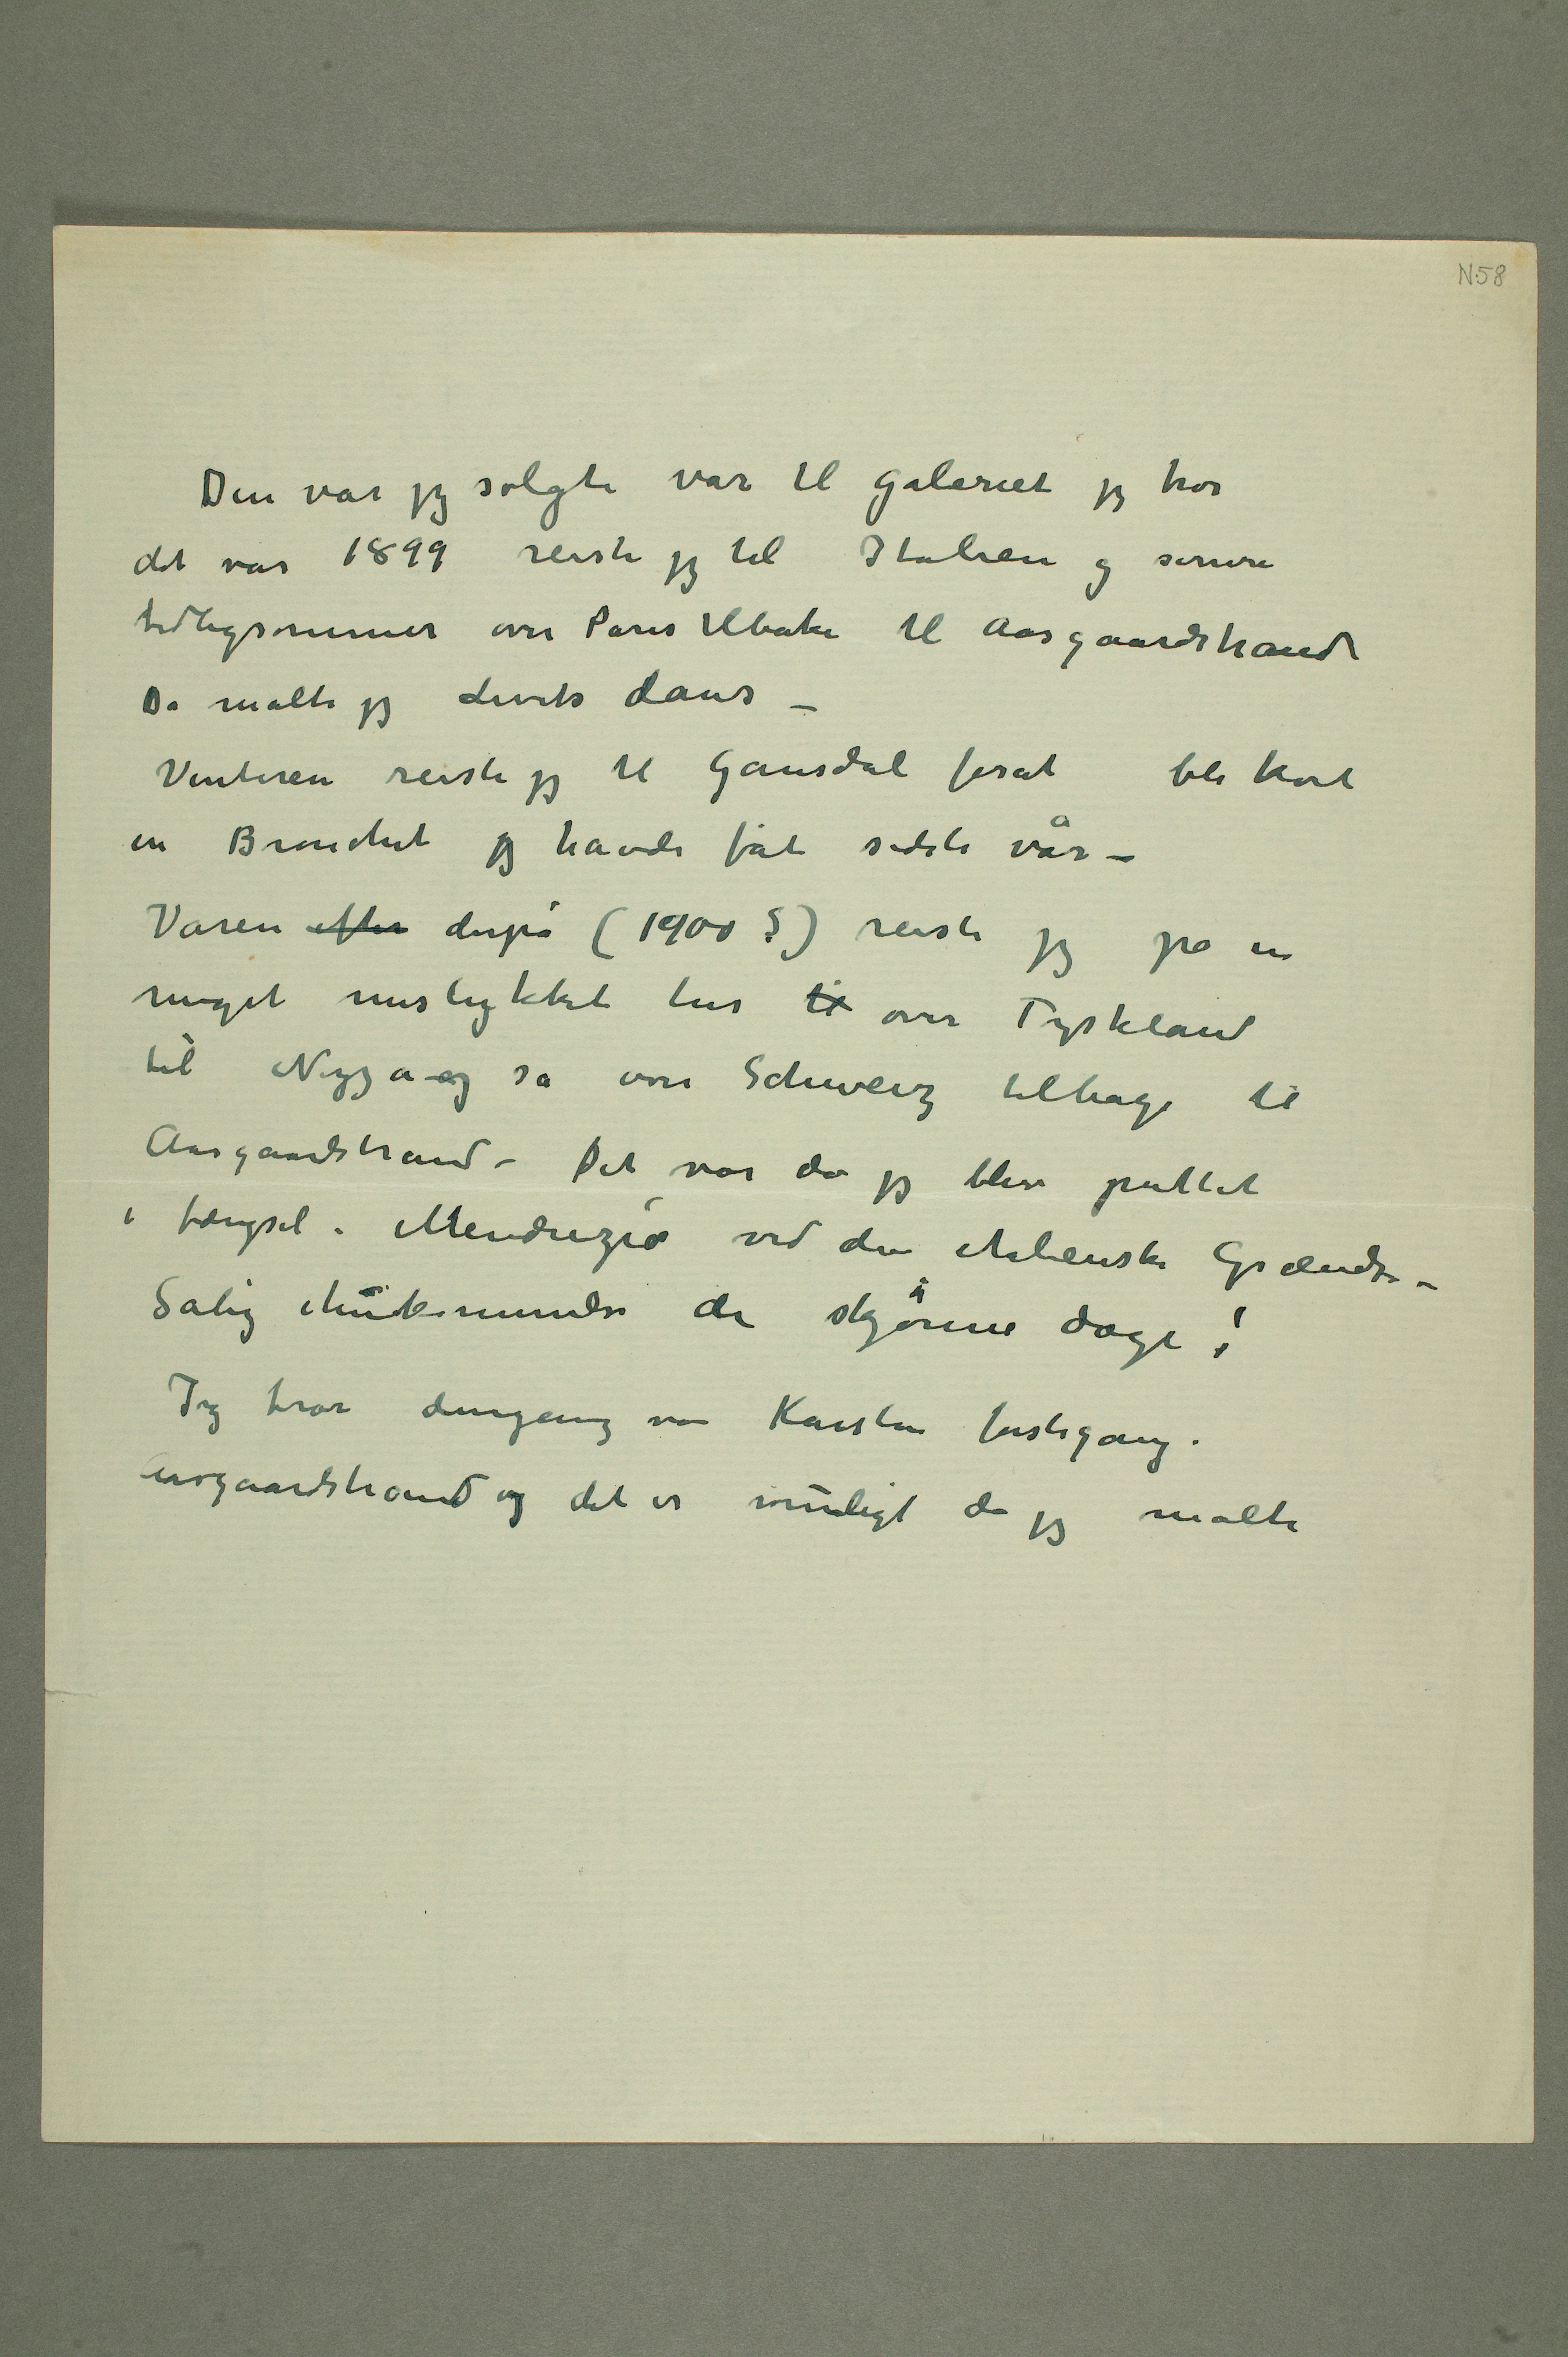 N58
Den vår jeg solgte vår til galeriet jeg tror
det var 1899 reiste jeg til Italien og senere
tidligsommer over Paris tilbake til Aasgaardstrand
Da malte jeg Livets dans –
Vinteren reiste jeg til Gausdal forat bli kvit
en Bronchit jeg havde fåt sidste vår –
Våren efter derpå (1900?) reiste jeg på en
noget mislykket tur til over Tyskland
til Nizza og så over Schweiz tilbage til
Aasgaardstrand – Det var da jeg blev puttet
i fængsel i Mendrizio ved den italienske Grændse –
Salig ihukommelse de skjønne dage!
Jeg tror dengang var Karsten førstegang i
Aasgaardstrand og det er rimeligt da jeg malte